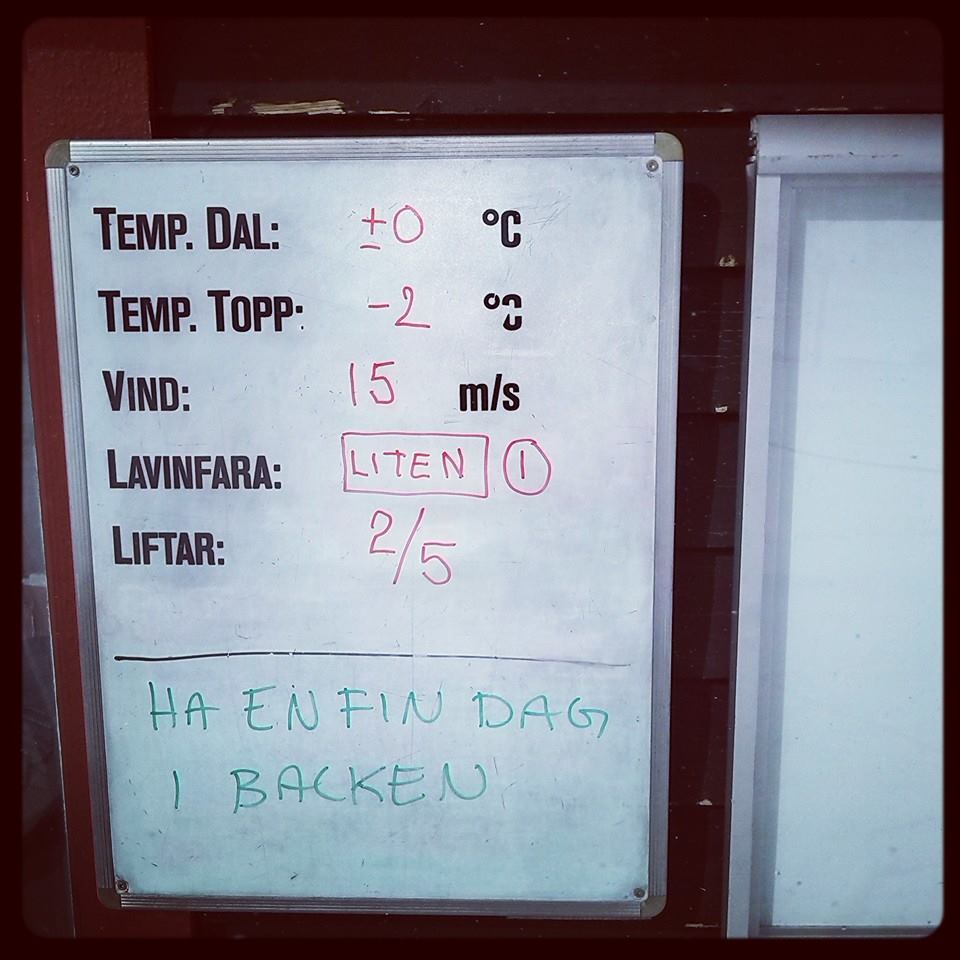 TEMP. DAL: ±0 °C
TEMP. TOPP: -2 °C
VIND: 15 m/s
LAVINFARA: LITEN 1
LIFTAR: 2/5
HA EN FIN DAG
I BACKEN